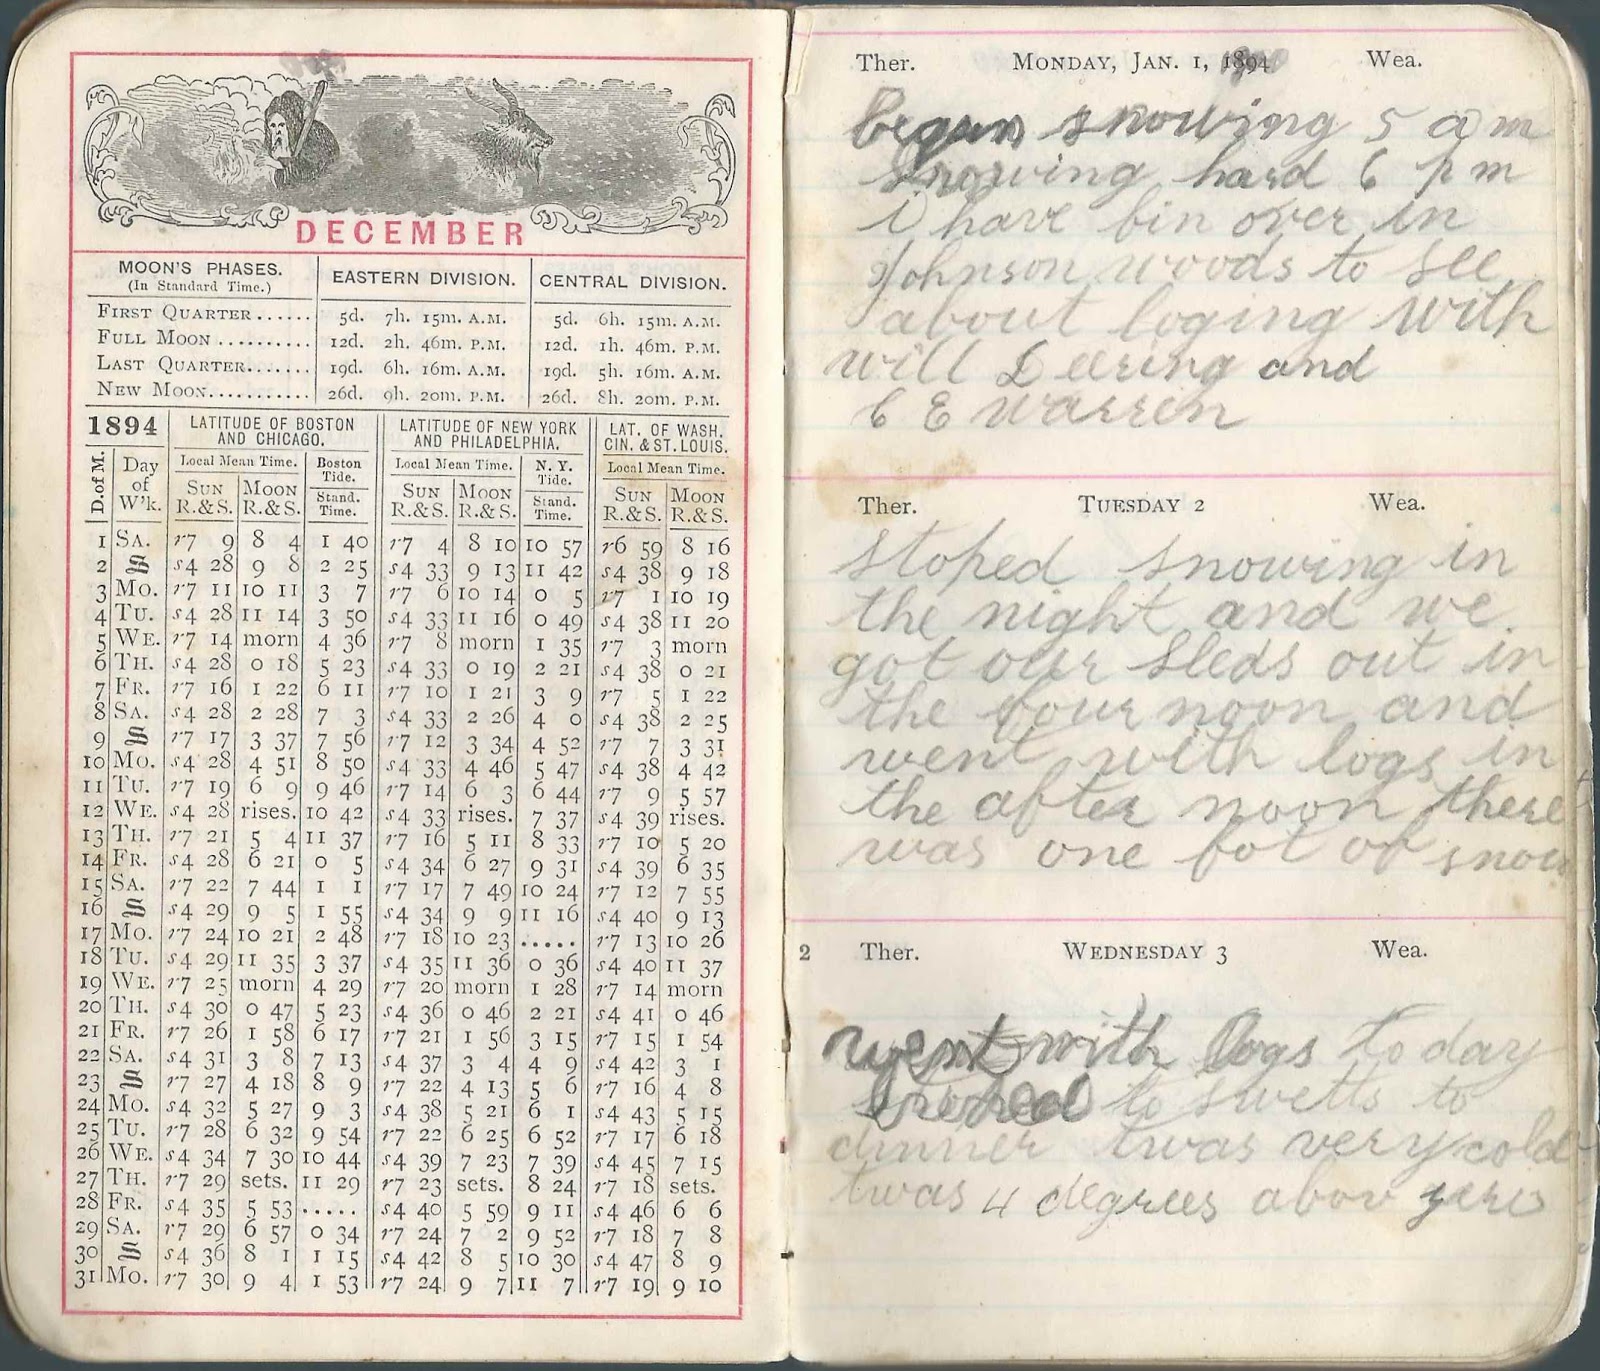 DECEMBER
MOON'S PHASES. (In Standard Time.) EASTERN DIVISION. CENTRAL DIVISION.
FIRST QUARTER...... 5d. 7h. 15m. A.M. 5d. 6h. 15m. A.M.
FULL MOON.......... 12d. 2h. 46m. P.M. 12d. 1h. 46m. P.M.
LAST QUARTER....... 19d. 6h. 16m. A.M. 19d. 5h. 16m. A.M.
NEW MOON........... 26d. 9h. 20m. P.M. 26d. 8h. 20m. P.M.
1894 LATITUDE OF BOSTON AND CHICAGO. LATITUDE OF NEW YORK AND PHILADELPHIA. LAT. OF WASH. CIN. & ST. LOUIS.
D. of M. Day of W'k. Local Mean Time. Boston Tide. Local Mean Time. N. Y. Tide. Local Mean Time.
SUN R. & S. MOON R. & S. Stand. Time. SUN R. & S. MOON R. & S. Stand. Time. SUN R. & S. MOON R. & S.
1 SA. r7 9 8 4 1 40 r7 4 8 10 10 57 r6 59 8 16
2 S s4 28 9 8 2 25 s4 33 9 13 11 42 s4 38 9 18
3 MO. r7 11 10 11 3 7 r7 6 10 14 0 5 r7 1 10 19
4 TU. s4 28 11 14 3 50 s4 33 11 16 0 49 s4 38 11 20
5 WE. r7 14 morn 4 36 r7 8 morn 1 35 r7 3 morn
6 TH. s4 28 0 18 5 23 s4 33 0 19 2 21 s4 38 0 21
7 FR. r7 16 1 22 6 11 r7 10 1 21 3 9 r7 5 1 22
8 SA. s4 28 2 28 7 3 s4 33 2 26 4 0 s4 38 2 25
9 S r7 17 3 37 7 56 r7 12 3 34 4 52 r7 7 3 31
10 MO. s4 28 4 51 8 50 s4 33 4 46 5 47 s4 38 4 42
11 TU. r7 19 6 9 9 46 r7 14 6 3 6 44 r7 9 5 57
12 WE. s4 28 rises. 10 42 s4 33 rises. 7 37 s4 39 rises.
13 TH. r7 21 5 4 11 37 r7 16 5 11 8 33 r7 10 5 20
14 FR. s4 28 6 21 0 5 s4 34 6 27 9 31 s4 39 6 35
15 SA. r7 22 7 44 1 1 r7 17 7 49 10 24 r7 12 7 55
16 S s4 29 9 5 1 55 s4 34 9 9 11 16 s4 40 9 13
17 MO. r7 24 10 21 2 48 r7 18 10 23 ..... r7 13 10 26
18 TU. s4 29 11 35 3 37 s4 35 11 36 0 36 s4 40 11 37
19 WE. r7 25 morn 4 29 r7 20 morn 1 28 r7 14 morn
20 TH. s4 30 0 47 5 23 s4 36 0 46 2 21 s4 41 0 46
21 FR. r7 26 1 58 6 17 r7 21 1 56 3 15 r7 15 1 54
22 SA. s4 31 3 8 7 13 s4 37 3 4 4 9 s4 42 3 1
23 S r7 27 4 18 8 9 r7 22 4 13 5 6 r7 16 4 8
24 MO. s4 32 5 27 9 3 s4 38 5 21 6 1 s4 43 5 15
25 TU. r7 28 6 32 9 54 r7 22 6 25 6 52 r7 17 6 18
26 WE. s4 34 7 30 10 44 s4 39 7 23 7 39 s4 45 7 15
27 TH. r7 29 sets. 11 29 r7 23 sets. 8 24 r7 18 sets.
28 FR. s4 35 5 53 ..... s4 40 5 59 9 11 s4 46 6 6
29 SA. r7 29 6 57 0 34 r7 24 7 2 9 52 r7 18 7 8
30 S s4 36 8 1 1 15 s4 42 8 5 10 30 s4 47 8 9
31 MO. r7 30 9 4 1 53 r7 24 9 7 11 7 r7 19 9 10
Ther. MONDAY, JAN. 1, 1894 Wea.
began snowing 5 a m
Snowing hard 6 p m
i have bin over in
Johnson woods to see
about loging with
will Deering and
C E Warren
Ther. TUESDAY 2 Wea.
stoped snowing in
the night and we
got our sleds out in
the four noon and
went with logs in
the after noon there
was one fot of snow
2 Ther. WEDNESDAY 3 Wea.
went with logs to day
to swetts to
dinner twas very cold
twas 4 degrees abov zero